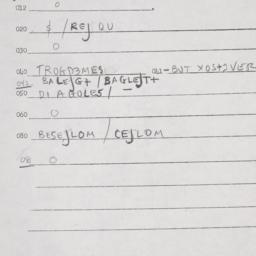 012 O
020 $ / REJ OU
030 O
040 TROGD3MES 041-BUT XOSTJVER
042 BALEJG+ / BAGLEJT+
050 DIAGOLES /
060 O
080 BESEJLOM / CEJLOM
08 O